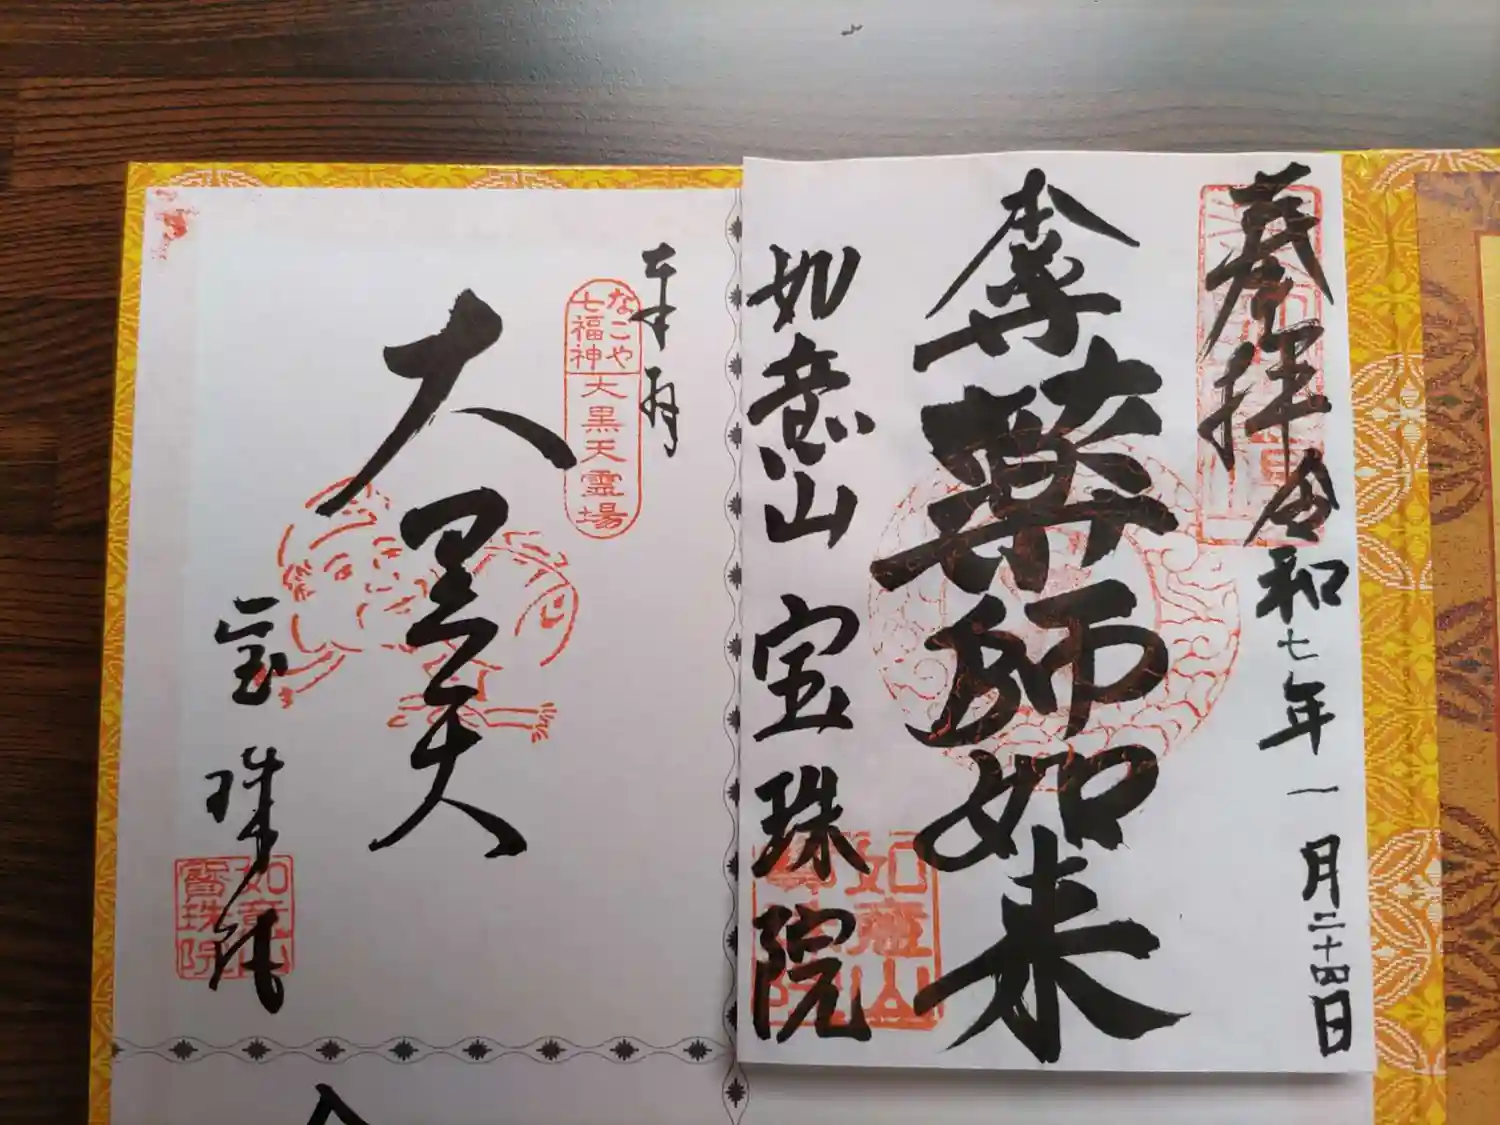 奉拝
令和七年一月二十四日
本尊
薬師如来
如意山
宝珠院
如意山
奉拝
なごや
七福神
大黒天霊場
大黒天
宝珠院
如意山
寳珠院